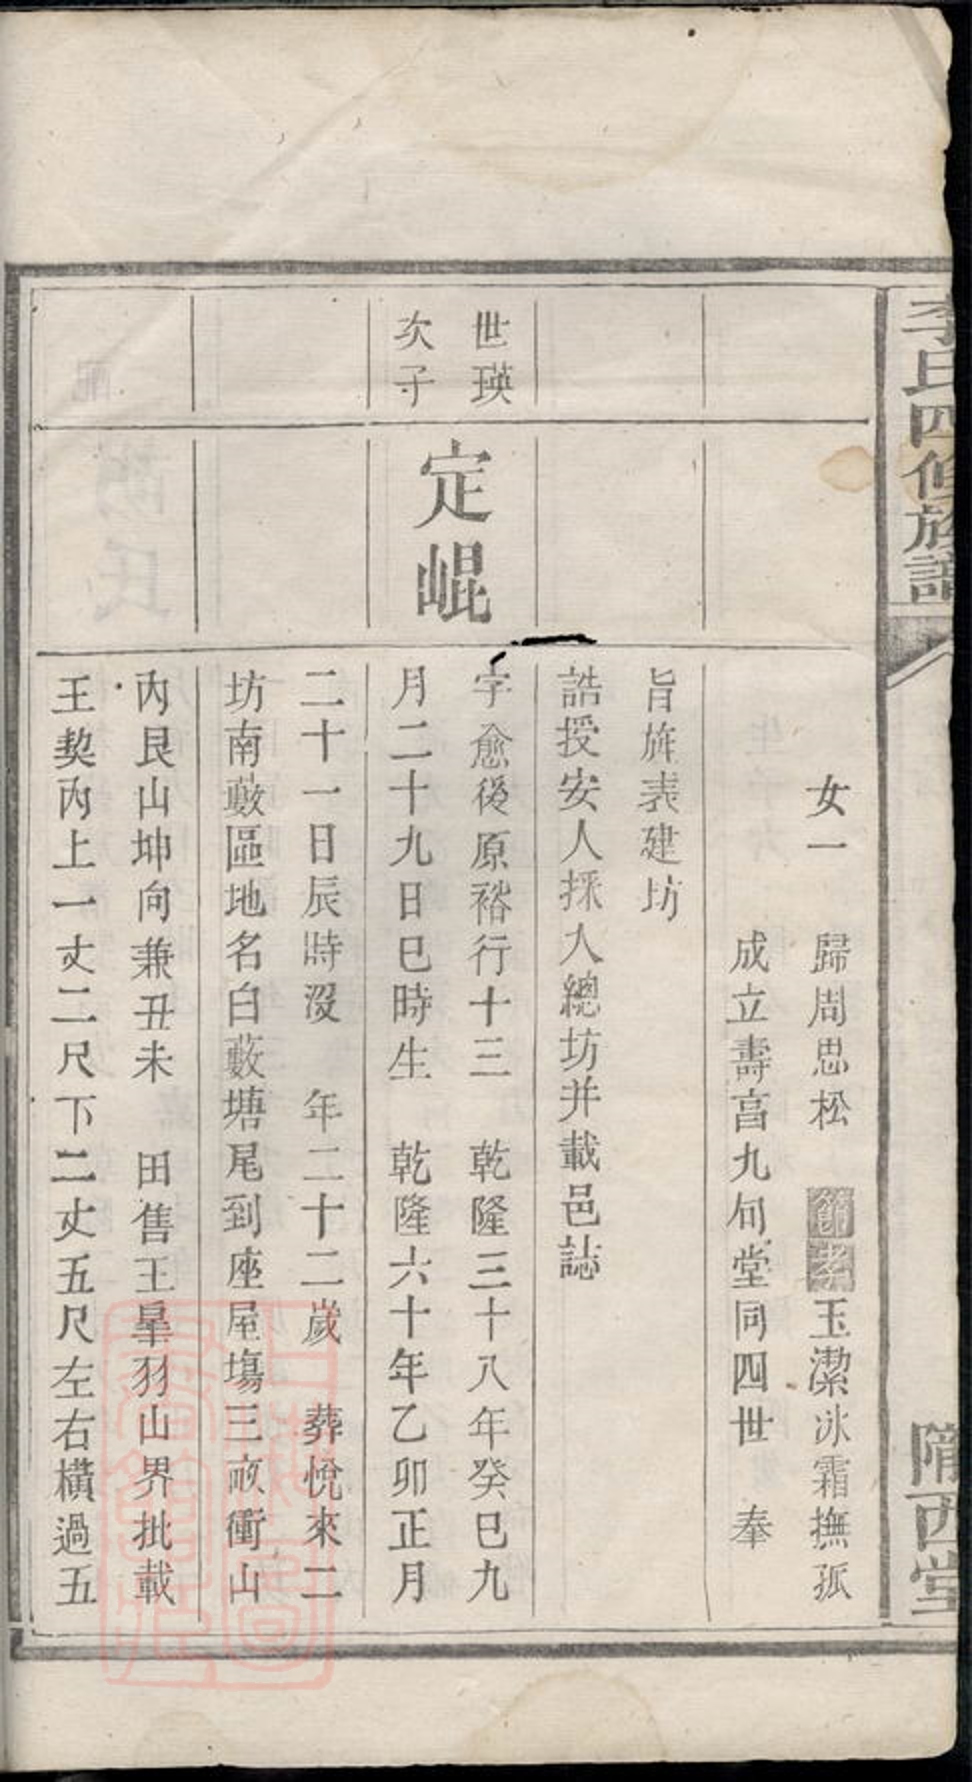 李氏四修族譜
隴西堂
女一 歸周思松 節孝玉潔冰霜撫孤
成立壽亯九旬堂同四世 奉
旨旌表建坊
誥授安人採入總坊并載邑誌
世瑛
次子
定崐
字愈後原裕行十三 乾隆三十八年癸巳九
月二十九日巳時生 乾隆六十年乙卯正月
二十一日辰時沒 年二十二歲 葬悅來二
坊南藪區地名白藪塘尾到座屋塲三畝衝山
內艮山坤向兼丑未 田售王羣羽山界批載
王契內上一丈二尺下二丈五尺左右橫過五